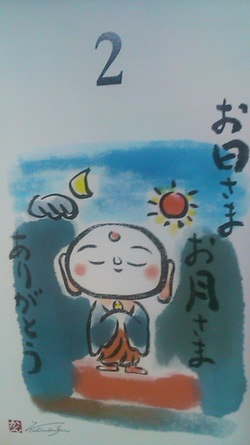 2
お日さま
お月さま
ありがとう